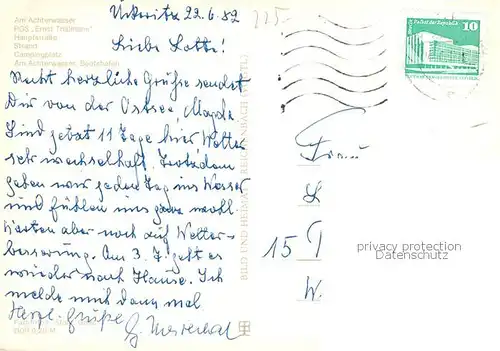 Am Achterwasser
POS „Ernst Thälmann"
Hauptstraße
Strand
Campingplatz
Am Achterwasser, Bootshafen
Ückeritz 22.6.82
Liebe Lotti!
Recht herzliche Grüße sendet
Dir von der Ostsee, Magda.
Sind jetzt 11 Tage hier, Wetter
sehr wechselhaft. Trotzdem
gehen wir jeden Tag ins Wasser
und fühlen uns ganz wohl.
Warten aber noch auf Wetter-
besserung. Am 3.7. geht es
wieder nach Hause. Ich
melde mich dann mal
Herzl. Grüße
BILD UND HEIMAT REICHENBACH
225-
Palast der Republik
10
Frau
L
15 T
W.
privacy protection
Datenschutz